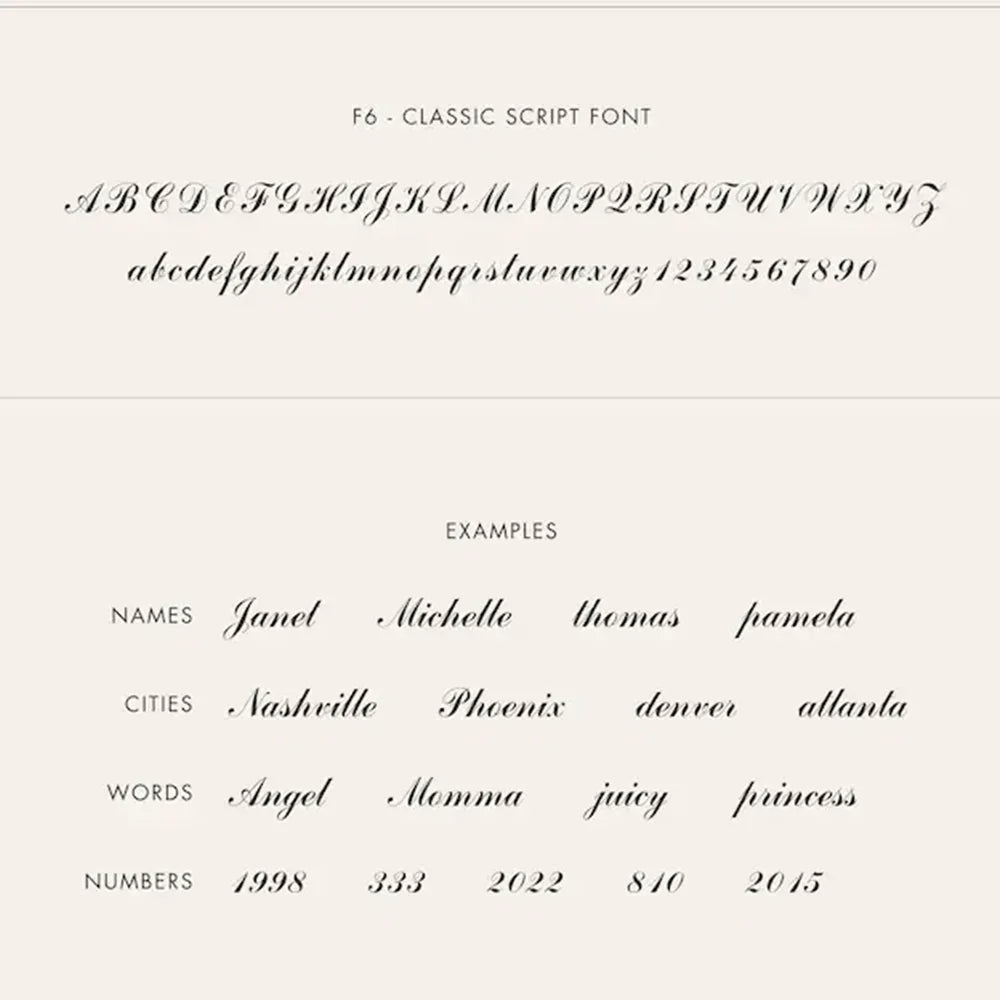 F6 - CLASSIC SCRIPT FONT
ABCDEFGHIJKLMNOPQRSTUVWXYZ
abcdefghijklmnopqrstuvwxyz1234567890
EXAMPLES
NAMES Janet Michelle thomas pamela
CITIES Nashville Phoenix denver atlanta
WORDS Angel Momma juicy princess
NUMBERS 1998 333 2022 810 2015